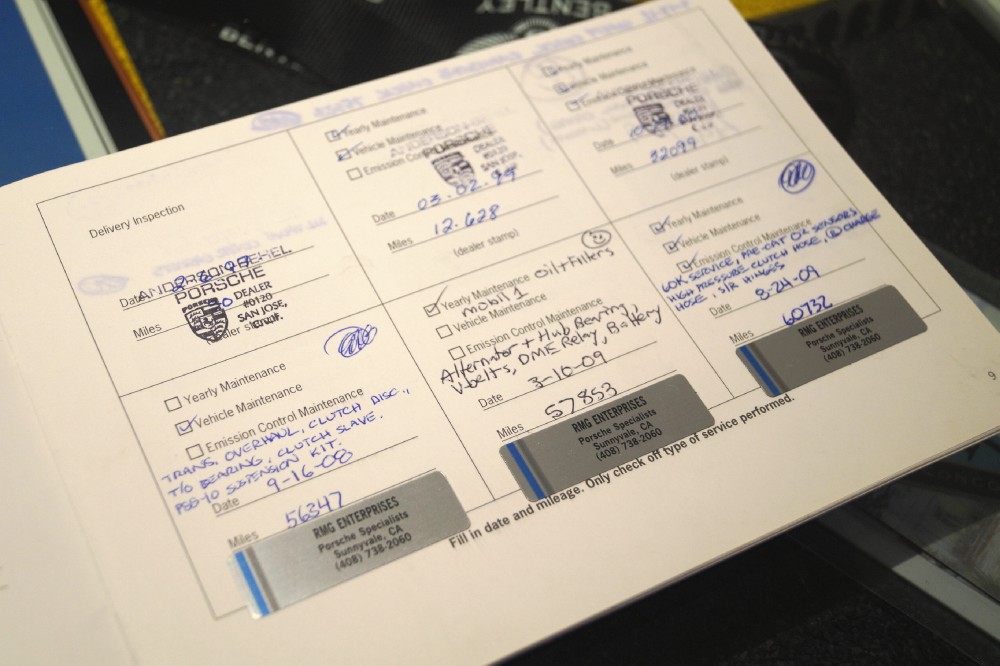 BENTLEY
Delivery Inspection
Date
PORSCHE
DEALER
#0120
SAN JOSE,
CALIF.
Miles
Yearly Maintenance
Vehicle Maintenance
PORSCHE
DEALER
#0120
SAN JOSE,
Date 03.02.99
Miles 12.628
(dealer stamp)
Yearly Maintenance
Vehicle Maintenance
Emission Control Maintenance
PORSCHE
DEALER
Date
Miles 32099
(dealer stamp)
Yearly Maintenance
Vehicle Maintenance
Emission Control Maintenance
TRANS. OVERHAUL, CLUTCH DISC.,
T/O BEARING, CLUTCH SLAVE.
PSS-10 SUSPENSION KIT.
Date 9-16-08
Miles 56347
RMG ENTERPRISES
Porsche Specialists
Sunnyvale, CA
(408) 738-2060
Yearly Maintenance oil + filters
mobil 1
Vehicle Maintenance
Emission Control Maintenance
Alternator + Hub Bearing,
Vbelts, DME Relay, Battery
Date 3-10-09
Miles 57853
RMG ENTERPRISES
Porsche Specialists
Sunnyvale, CA
(408) 738-2060
Yearly Maintenance
Vehicle Maintenance
Emission Control Maintenance
60K SERVICE, PRE-CAT O2 SENSORS
HIGH PRESSURE CLUTCH HOSE, CHARGE
HOSE, S/R HINGES
Date 8-24-09
Miles 60732
RMG ENTERPRISES
Porsche Specialists
Sunnyvale, CA
(408) 738-2060
Fill in date and mileage. Only check off type of service performed.
9